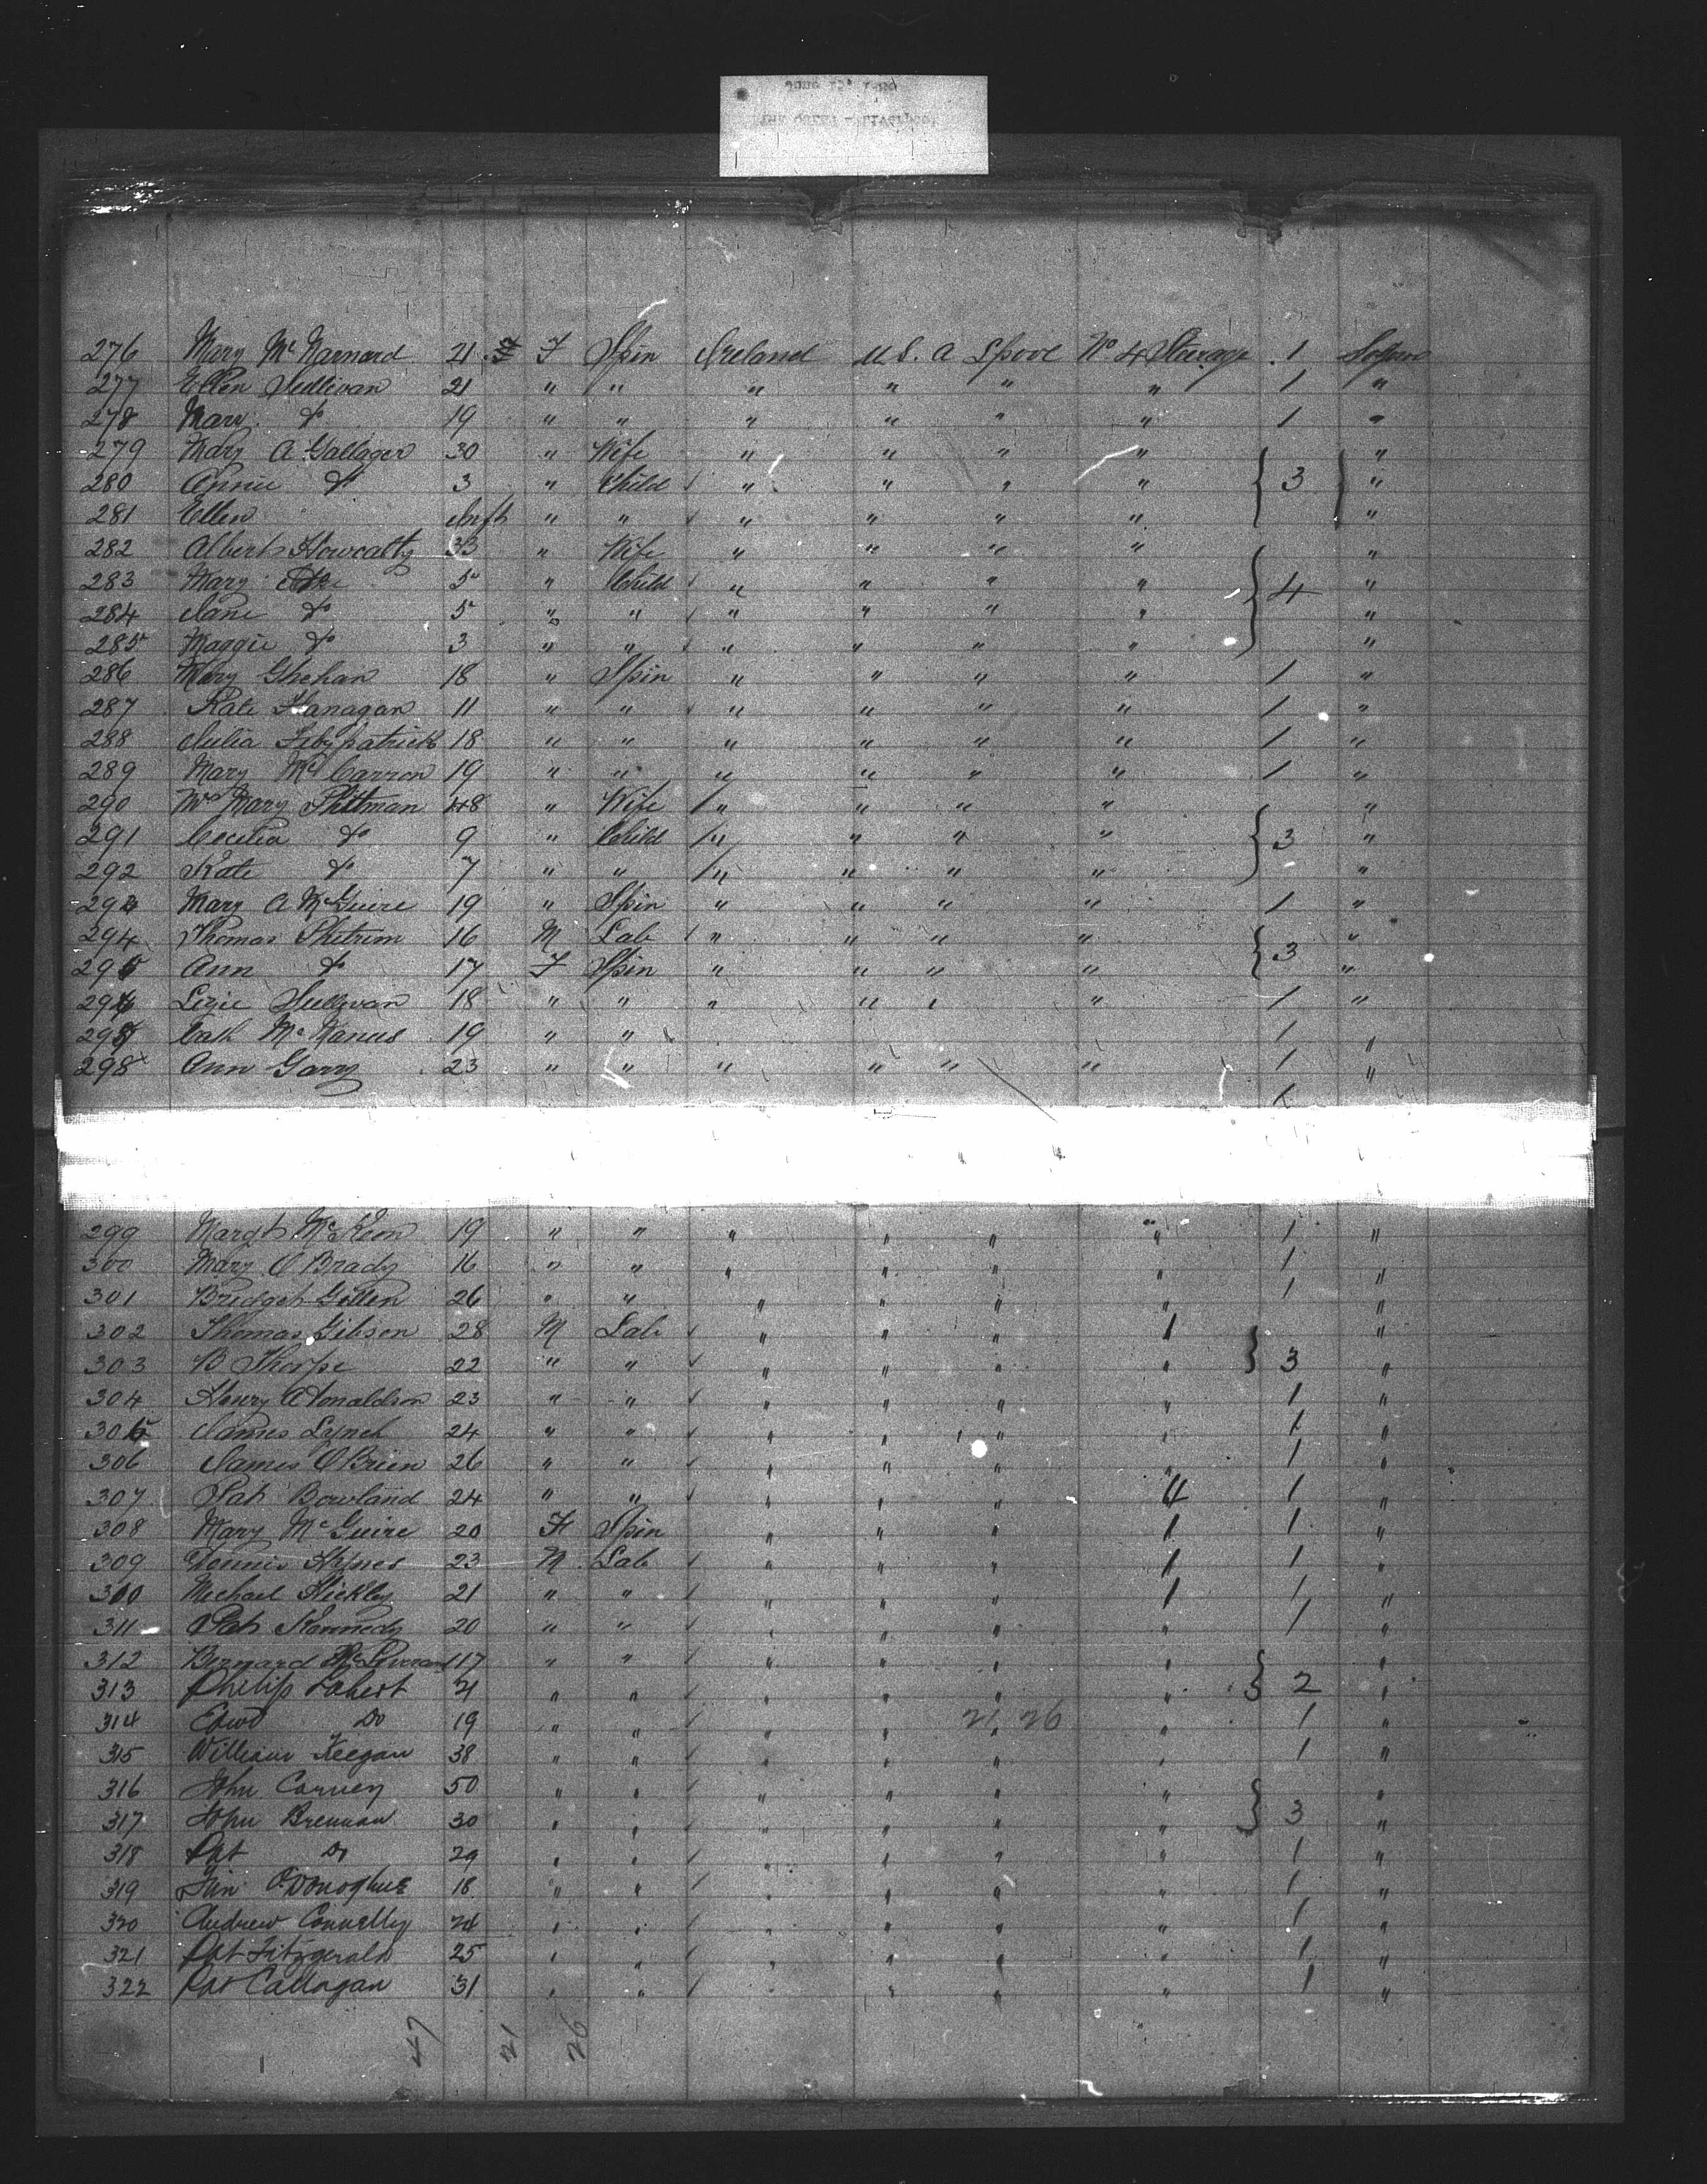 276 Mary McNamard 21 F Spin Ireland U.S.A Lpool No 4 Steerage 1 Sojourn
277 Ellen Sullivan 21 " " " " " " 1 "
278 Mary Do 19 " " " " " " 1 "
279 Mary A Gallager 30 " Wife " " " " "
280 Annie Do 3 " Child " " " " 3 "
281 Ellen Inft " " " " " " "
282 Albert 33 " Wife " " " " "
283 Mary 5 " Child " " " " 4 "
284 Jane Do 5 " " " " " " "
285 Maggie Do 3 " " " " " " "
286 Mary Ghehan 18 " Spin " " " " 1 "
287 Kate Flanagan 11 " " " " " " 1 "
288 Julia Fitzpatrick 18 " " " " " " 1 "
289 Mary McCarron 19 " " " " " " 1 "
290 Mrs Mary Pittman 48 " Wife " " " " "
291 Cecilia Do 9 " Child " " " " 3 "
292 Kate Do 7 " " " " " " "
293 Mary A McGuire 19 " Spin " " " " 1 "
294 Thomas 16 M Lab " " " " 3 "
295 Ann Do 17 F Spin " " " " "
296 Lizie Sullivan 18 " " " " " " 1 "
297 Cath McManus 19 " " 1 "
298 Ann Garry 23 " " " " " " 1 "
299 Margt McKeon 19 " " " " " " 1 "
300 Mary O Brady 16 " " " " " " 1 "
301 Bridget Gillen 26 " " " " " " 1 "
302 Thomas Gibson 28 M Lab " " " 1 "
303 B Thorpe 22 " " " " " " 3 "
304 Henry A Donaldson 23 " " " " " " 1 "
305 James Lynch 24 " " " " " " 1 "
306 James O Brien 26 " " " " " " 1 "
307 Pat Bowland 24 " " " " " 4 1 "
308 Mary McGuire 20 F Spin " " " 1 1 "
309 Dennis Hynes 23 M Lab " " " 1 1 "
300 Michael Hickley 21 " " " " " 1 1 "
311 Pat Kennedy 20 " " " " " " 1 "
312 Bernard 17 " " " " " " "
313 Philip Lahert 21 " " " " " " 2 "
314 Edwd Do 19 " " " " 21 26 " 1 "
315 William Keegan 38 " " " " " " 1 "
316 John Carney 50 " " " " " " "
317 John Brennan 30 " " " " " " 3 "
318 Pat Do 29 " " " " " " 1 "
319 Tim O.Donoghue 18 " " " " " " 1 "
320 Andrew Connelly 24 " " " " " " 1 "
321 Pat Fitzgerald 25 " " " " " " 1 "
322 Pat Callagan 31 " " " " " " 1 "
47 21 26